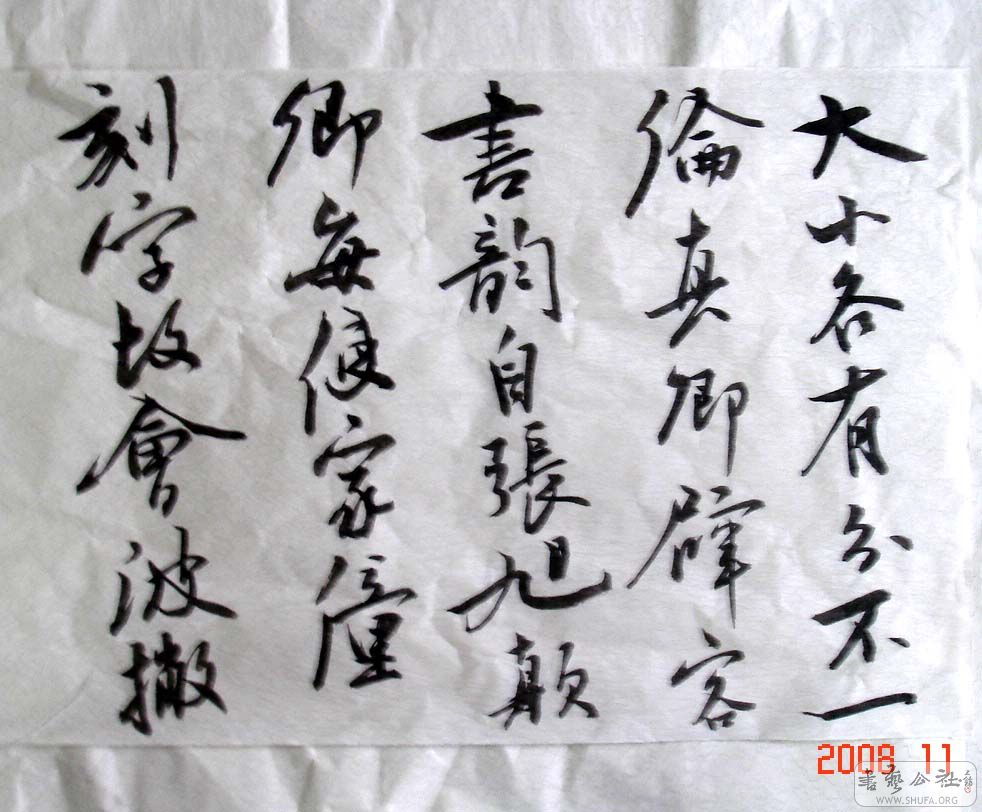 大小各有分不一
倫真卿客
書韵自張旭顛
卿每使家僮
刻字故會波撇
2008 11
書藝公社
WWW.SHUFA.ORG